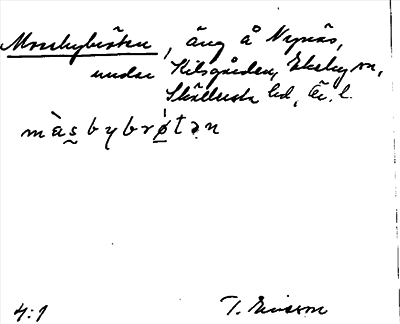 Mossbybråten, äng å Nynäs,
under Kilsgården, Ekeby sn,
Skällersta hd, Ör. l.
màs̰bybrøtən
4:1 T. Ericsson